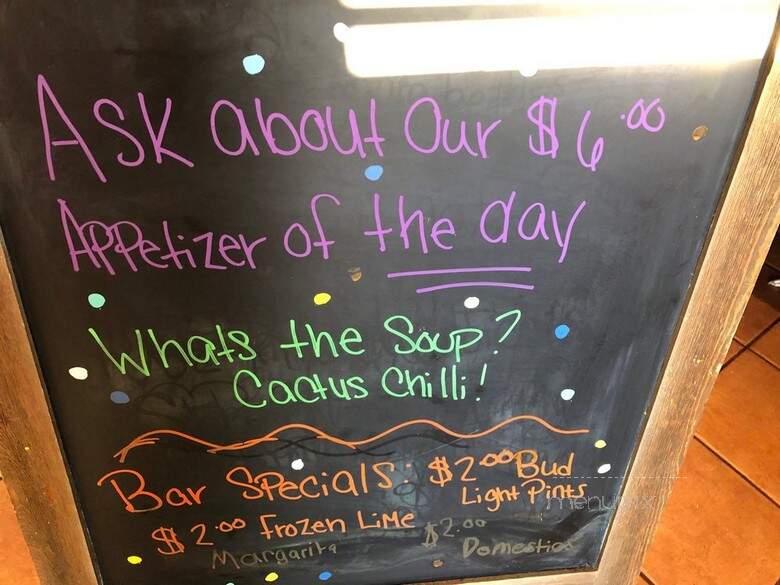 Ask about Our $6.00
Appetizer of the day
Whats the Soup?
Cactus Chilli!
Bar Specials: $2.00 Bud
Light Pints
$2.00 Frozen Lime
Margarita
$2.00
Domestics
menupix